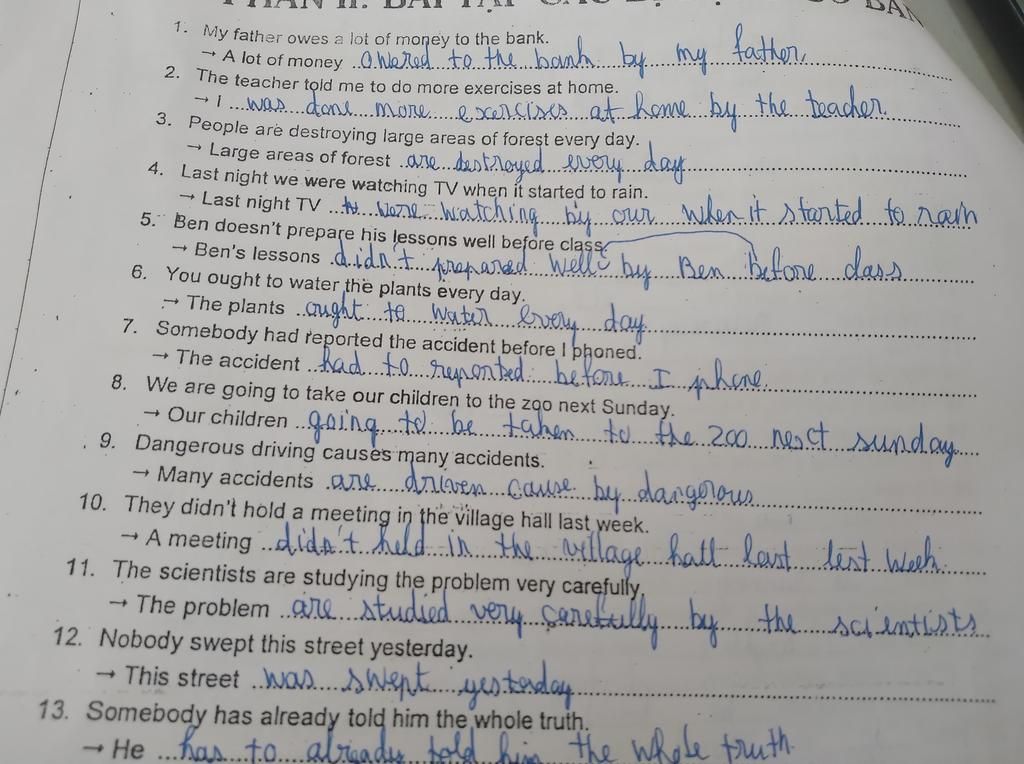 PHẦN II: BÀI TẬP CÂU BỊ ĐỘNG CƠ BẢN
1. My father owes a lot of money to the bank.
→ A lot of money owered to the bank by my father,
2. The teacher told me to do more exercises at home.
→ I was done more exercises at home by the teacher
3. People are destroying large areas of forest every day.
→ Large areas of forest are destroyed every day
4. Last night we were watching TV when it started to rain.
→ Last night TV were watching by our when it started to rain
5. Ben doesn't prepare his lessons well before class.
→ Ben's lessons didn't prepared well by Ben before class
6. You ought to water the plants every day.
→ The plants ought to water every day
7. Somebody had reported the accident before I phoned.
→ The accident had to reported before I phone
8. We are going to take our children to the zoo next Sunday.
→ Our children going to be taken to the zoo next sunday
9. Dangerous driving causes many accidents.
→ Many accidents are driven cause by dangerous
10. They didn't hold a meeting in the village hall last week.
→ A meeting didn't held in the village hall last lest week
11. The scientists are studying the problem very carefully.
→ The problem are studied very carefully by the scientists
12. Nobody swept this street yesterday.
→ This street was swept yesterday
13. Somebody has already told him the whole truth.
→ He has to already told him the whole truth